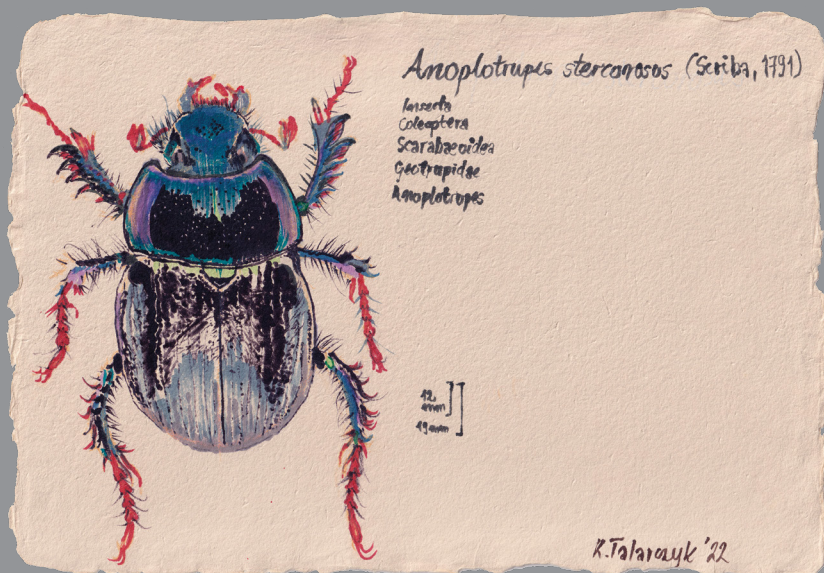 Anoplotrupes stercorosus (Scriba, 1791)
Insecta
Coleoptera
Scarabaeoidea
Geotrupidae
Anoplotrupes
12
mm
19mm
K.Talarczyk '22